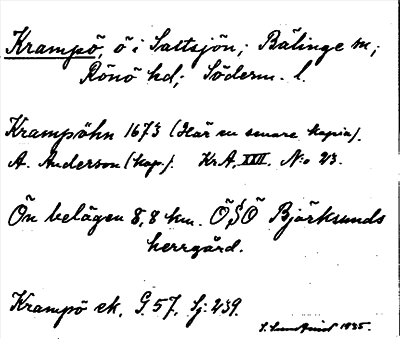 Krampö, ö i Saltsjön; Bälinge sn;
Rönö hd; Söderm. l.
Krampöhn 1673 (Här en senare kopia).
A. Anderson (kop.). Kr.A. XXII. N:o 23.
Ön belägen 8,8 km. ÖSÖ Björksunds
herrgård.
Krampö ek. G. 57. Sj: 239.
1935.